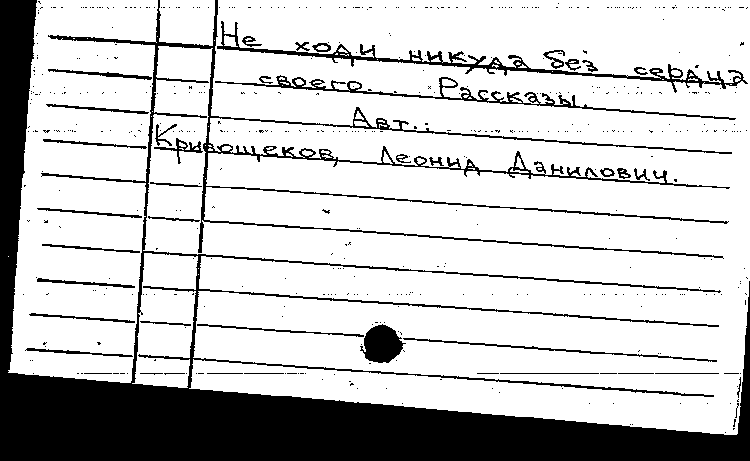 Не ходи никуда без сердца
своего... Рассказы.
Авт.:
Кривощеков, Леонид Данилович.